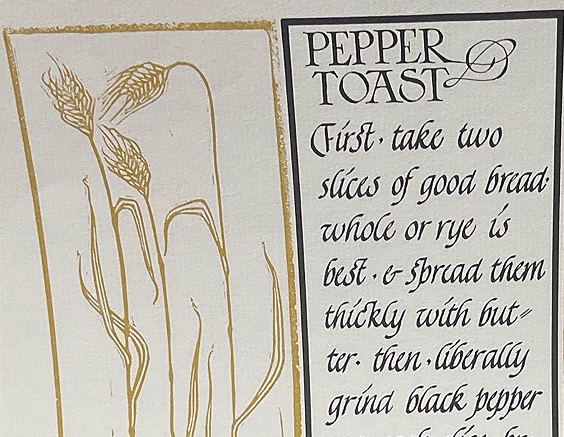 PEPPER
TOAST
First · take two
slices of good bread·
whole or rye is
best · & spread them
thickly with but〃
ter · then · liberally
grind black pepper